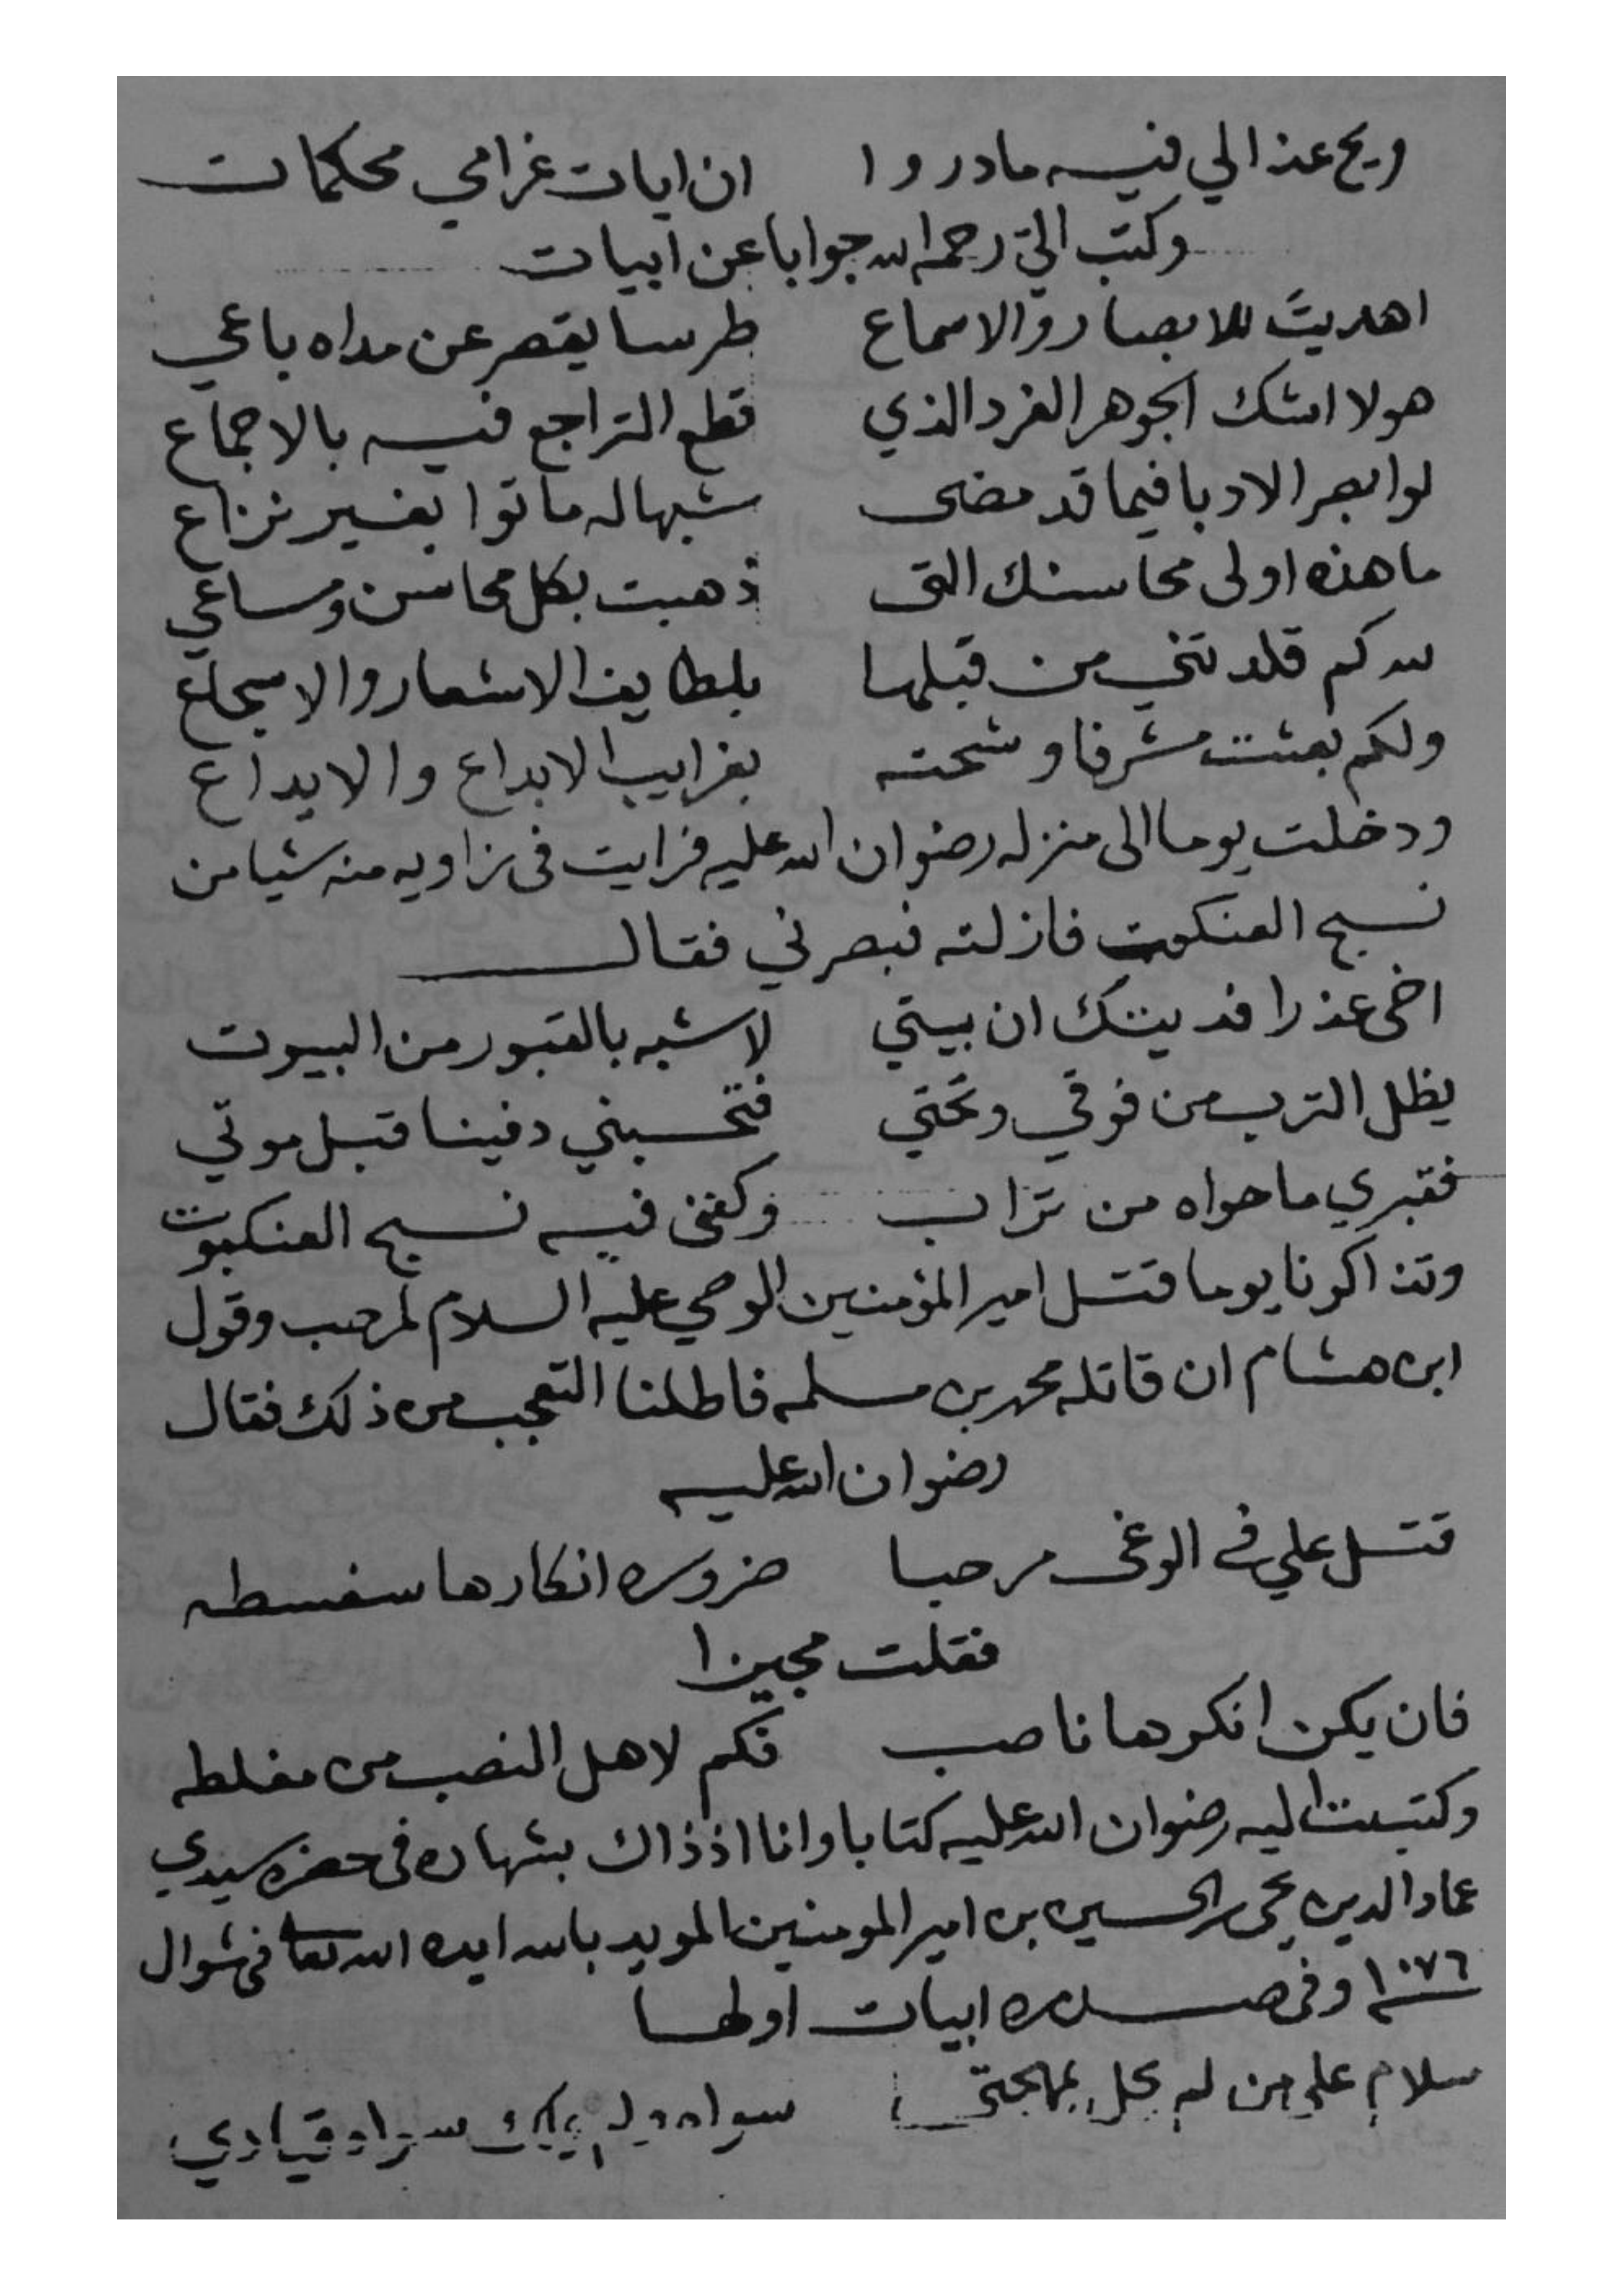 ويح عذالي فيه مادروا ان ايات غرامي محكمات
وكتب الي رحمه الله جوابا عن ابيات
اهديت للابصار والاسماع طرسا يقصر عن مداه باعي
هو لا اشك الجوهر الفرد الذي قطع التراجع فيه بالاجماع
لو ابصر الادبا فيما قد مضى شبها له ماتوا بغير نزاع
ما هذه اولى محاسنك التي ذهبت بكل محاسن ومساعي
لله كم قلدتني من قبلها بلطايف الاشعار والاسجاع
ولكم بعثت مشرفا وشحته بغرايب الابداع والايداع
ودخلت يوما الى منزله رضوان الله عليه فرايت في زاويه منه شيا من
نسج العنكبوت فازلته فبصرني فقال
اخي عذرا فديتك ان بيتي لاشبه بالقبور من البيوت
يظل الترب من فوقي وتحتي فتحسبني دفينا قبل موتي
فقبري ما حواه من تراب وكفني فيه نسج العنكبوت
وتذاكرنا يوما قتل امير المؤمنين الوصي عليه السلام لمرحب وقول
ابن هشام ان قاتله محمد بن مسلمه فاطلنا التعجب من ذلك فقال
رضوان الله عليه
قتل علي في الوغى مرحبا ضروره انكارها سفسطه
فقلت مجيزا
فان يكن انكرها ناصب فكم لاهل النصب من مغلطه
وكتبت اليه رضوان الله عليه كتابا وانا اذ ذاك بشهاره في حضره سيدي
عماد الدين يحيى بن الحسين بن امير المومنين المويد بالله ايده الله تعا في شوال
١٠٧٦ وفي صدره ابيات اولها
سلام على من لم يحل بمهجتي سواه ولم يملك سواه قيادي